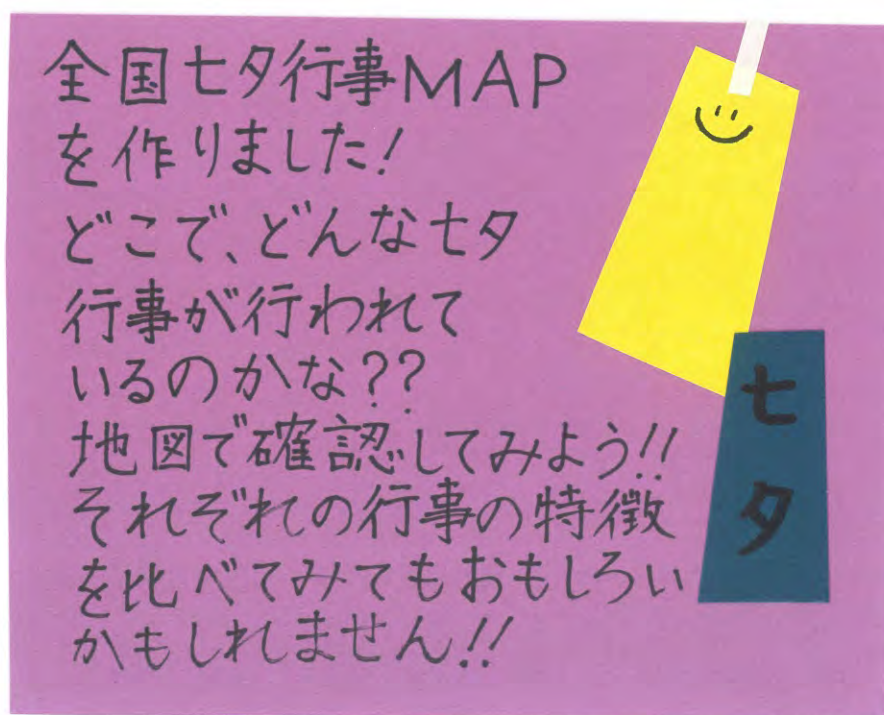 全国七夕行事MAP
を作りました!
どこで、どんな七夕
行事が行われて
いるのかな??
地図で確認してみよう!!
それぞれの行事の特徴
を比べてみてもおもしろい
かもしれません!!
七夕